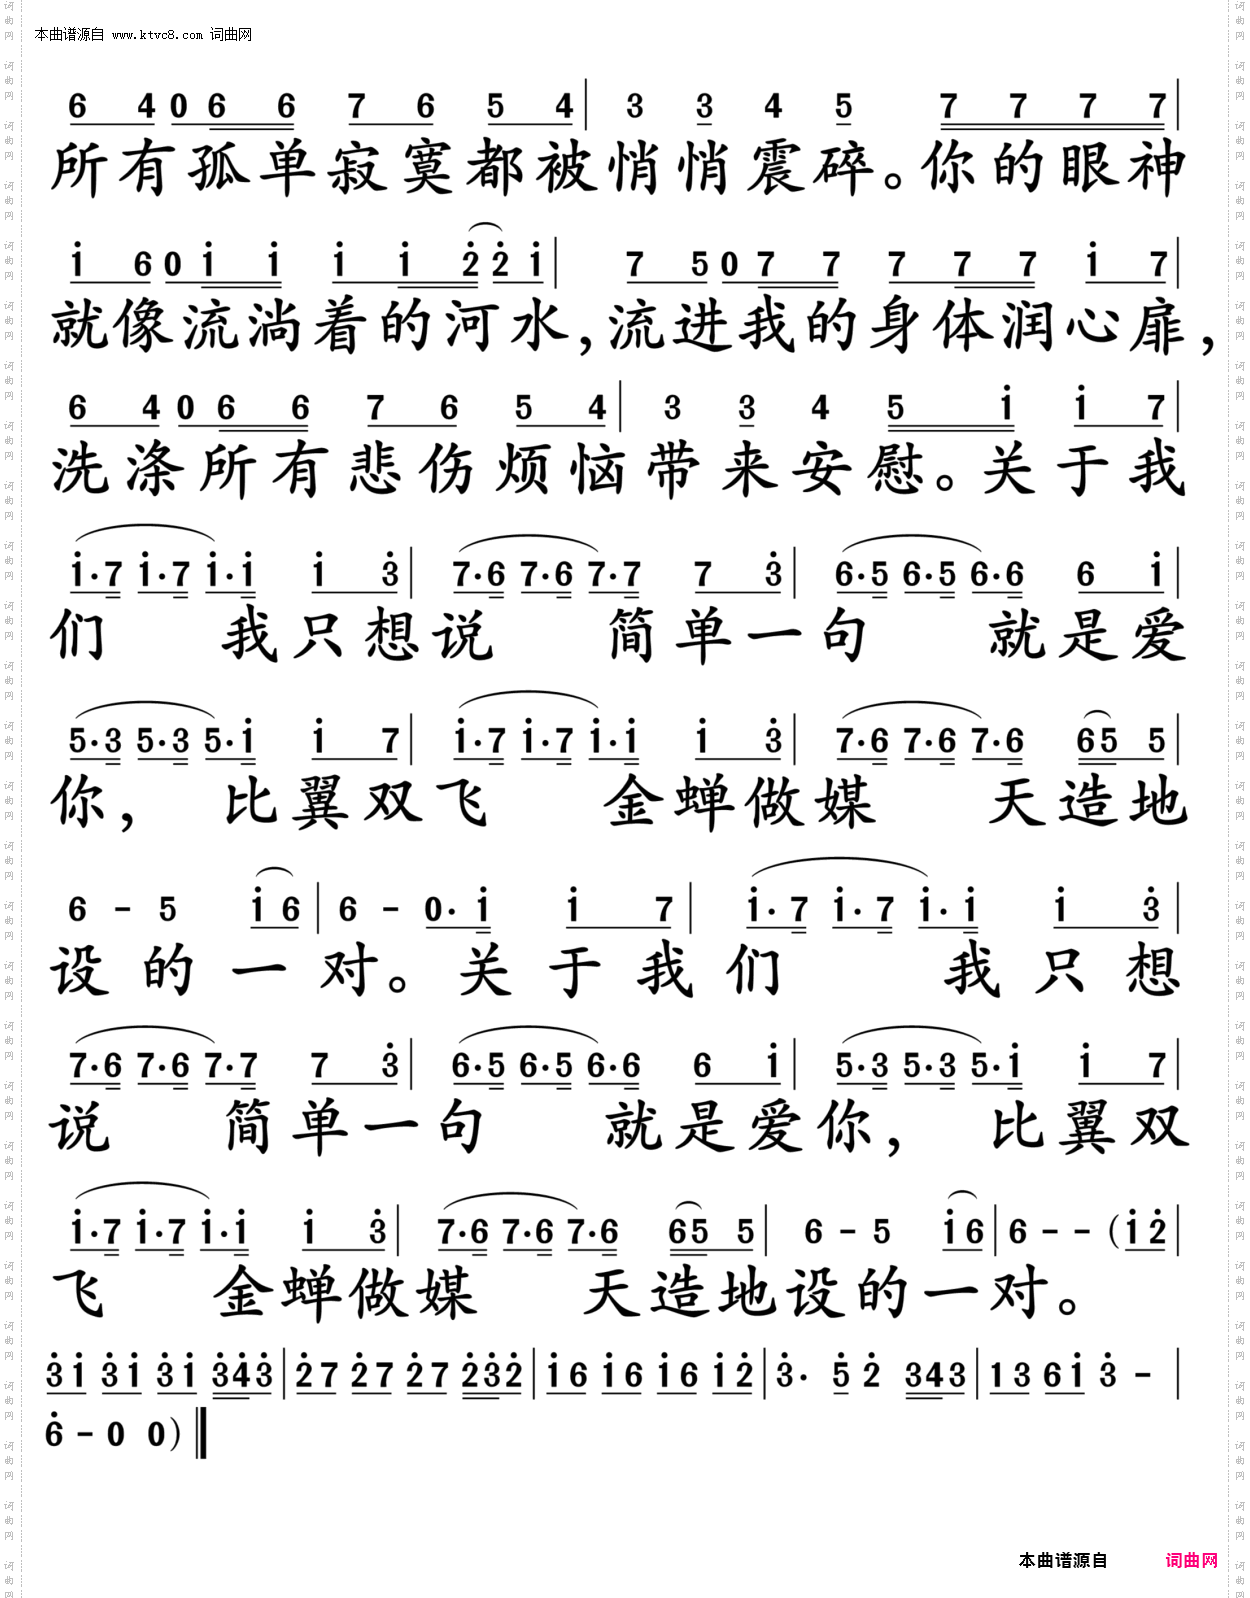 本曲谱源自 www.ktvc8.com 词曲网
6 4 0 6 6 7 6 5 4 | 3 3 4 5 7 7 7 7 |
所有孤单寂寞都被悄悄震碎。你的眼神
i 6 0 i i i i 2̇ 2̇ i | 7 5 0 7 7 7 7 7 i 7 |
就像流淌着的河水,流进我的身体润心扉,
6 4 0 6 6 7 6 5 4 | 3 3 4 5 i i 7 |
洗涤所有悲伤烦恼带来安慰。关于我
i·7 i·7 i·i i 3̇ | 7·6 7·6 7·7 7 3̇ | 6·5 6·5 6·6 6 i |
们 我只想说 简单一句 就是爱
5·3 5·3 5·i i 7 | i·7 i·7 i·i i 3̇ | 7·6 7·6 7·6 65 5 |
你, 比翼双飞 金蝉做媒 天造地
6 - 5 i 6 | 6 - 0· i i 7 | i·7 i·7 i·i i 3̇ |
设的一对。关于我们 我只想
7·6 7·6 7·7 7 3̇ | 6·5 6·5 6·6 6 i | 5·3 5·3 5·i i 7 |
说 简单一句 就是爱你, 比翼双
i·7 i·7 i·i i 3̇ | 7·6 7·6 7·6 65 5 | 6 - 5 i 6 | 6 - - (i 2̇ |
飞 金蝉做媒 天造地设的一对。
3̇ i 3̇ i 3̇ i 3̇4̇3̇ | 2̇ 7 2̇ 7 2̇ 7 2̇3̇2̇ | i 6 i 6 i 6 i 2̇ | 3̇· 5̇ 2̇ 343 | 1 3 6 i 3̇ - |
6̇ - 0 0) ‖
本曲谱源自 词曲网